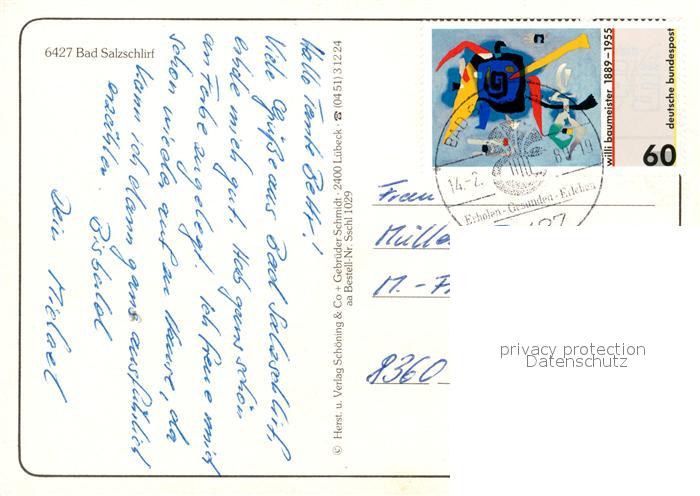 6427 Bad Salzschlirf
Hallo Tante Betti!
Viele Grüße aus Bad Salzschlirf
erhole mich gut. Hab ganz schön
an Farbe zugelegt. Ich freue mich
schon wieder auf zu Hause, da
kann ich dann ganz ausführlich
erzählen. Bis bald
Dein Michael
© Herst. u. Verlag Schöning & Co + Gebrüder Schmidt · 2400 Lübeck · ☎ (04 51) 3 12 24
aa Bestell-Nr. Sschl 1029
willi baumeister 1889–1955
deutsche bundespost
60
BAD
14.-2.
89-19
Erholen-Gesunden-Erleben
Frau
Mülle
M.-
8360
privacy protection
Datenschutz